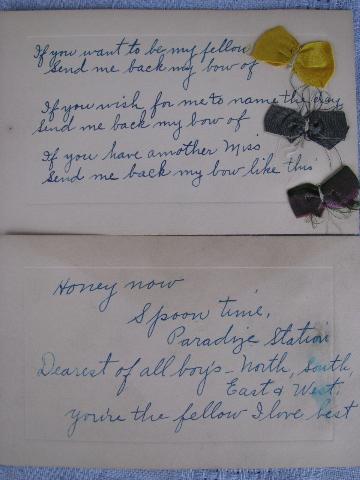 If you want to be my fellow
Send me back my bow of
If you wish for me to name the day
Send me back my bow of
If you have another Miss
Send me back my bow like this
Honey now
Spoon time,
Paradize Station
Dearest of all boys - North, South,
East & West.
You're the fellow I love best